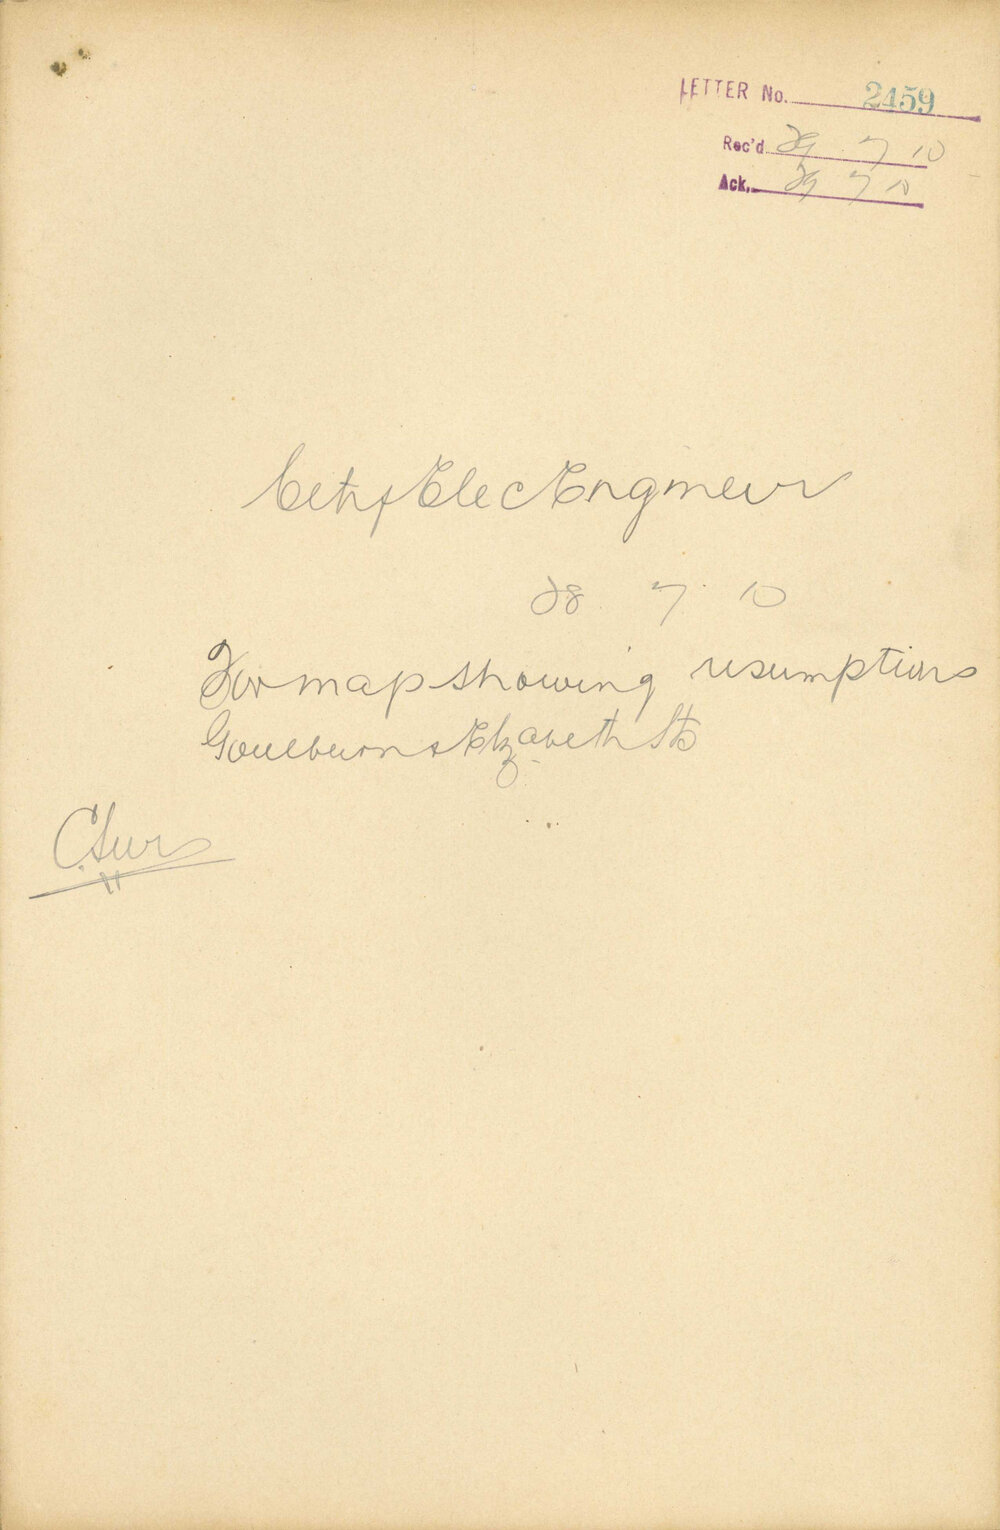 LETTER No. 2459
Rec'd 29 7 10
Ack. 29 7 10
City Elec Engineer
28 7 10
For map showing resumptions
Goulburn & Elizabeth Sts
C. Sur